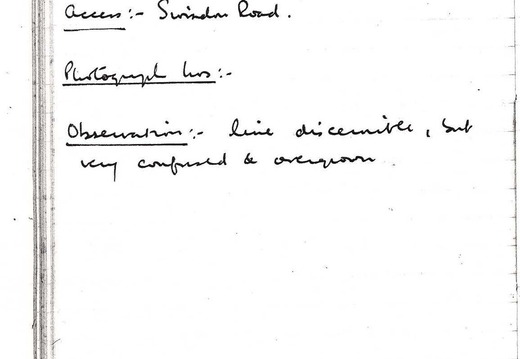 Access:- Swindon Road.
Photograph Nos:-
Observation:- line discernible, but
very confused & overgrown